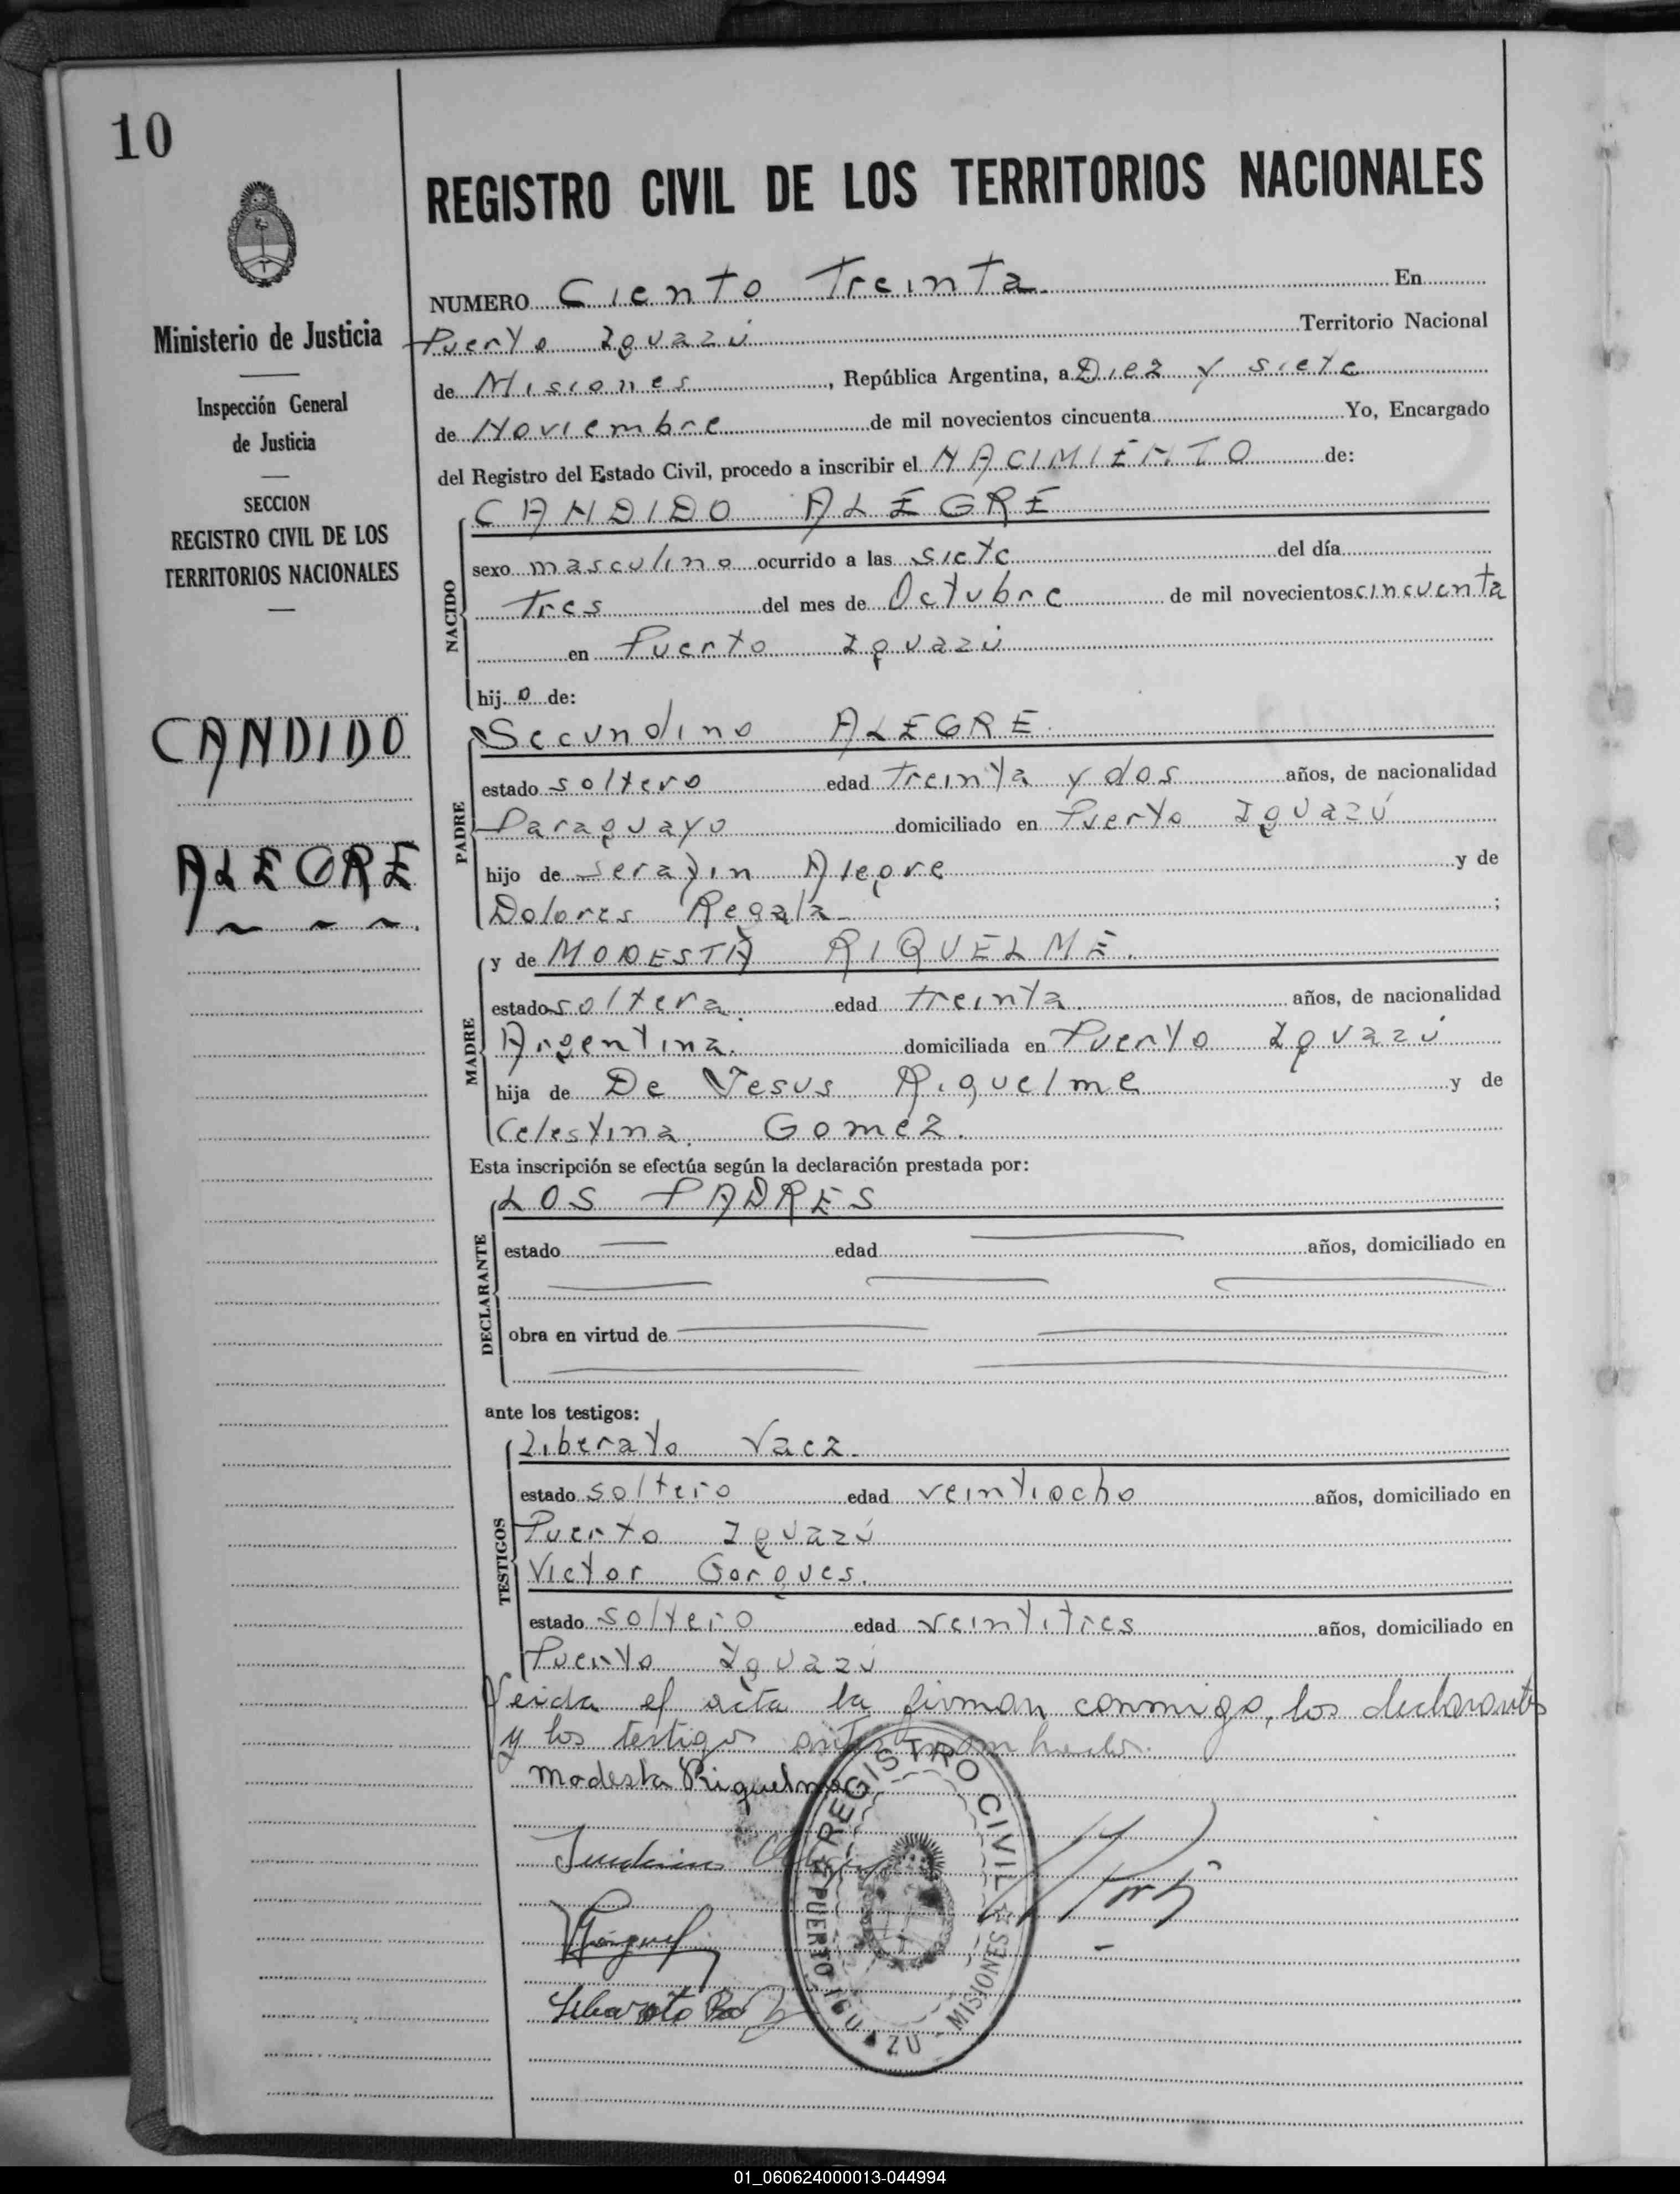 10
REGISTRO CIVIL DE LOS TERRITORIOS NACIONALES
Ministerio de Justicia
Inspección General
de Justicia
SECCION
REGISTRO CIVIL DE LOS
TERRITORIOS NACIONALES
CANDIDO
ALEGRE
NUMERO Ciento Treinta. En
Puerto Iguazú Territorio Nacional
de Misiones, República Argentina, a Diez y siete
de Noviembre de mil novecientos cincuenta Yo, Encargado
del Registro del Estado Civil, procedo a inscribir el NACIMIENTO de:
NACIDO
CANDIDO ALEGRE
sexo masculino ocurrido a las siete del día
Tres del mes de Octubre de mil novecientos cincuenta
en Puerto Iguazú
hij o de:
PADRE
Secundino ALEGRE.
estado soltero edad treinta y dos años, de nacionalidad
Paraguayo domiciliado en Puerto Iguazú
hijo de Serafin Alegre y de
Dolores Regala ;
MADRE
y de MODESTA RIQUELME.
estado soltera. edad treinta. años, de nacionalidad
Argentina. domiciliada en Puerto Iguazú
hija de De Jesus Riquelme y de
Celestina. Gomez.
Esta inscripción se efectúa según la declaración prestada por:
DECLARANTE
LOS PADRES
estado edad años, domiciliado en
obra en virtud de
ante los testigos:
TESTIGOS
Liberato Vaez.
estado soltero edad veintiocho años, domiciliado en
Puerto Iguazú
Victor Gorgues.
estado soltero edad veintitres años, domiciliado en
Puerto Iguazú
Leida el acta la firman conmigo, los declarantes
y los testigos
Modesta Riquelme
REGISTRO CIVIL
PUERTO IGUAZU - MISIONES
01_060624000013-044994